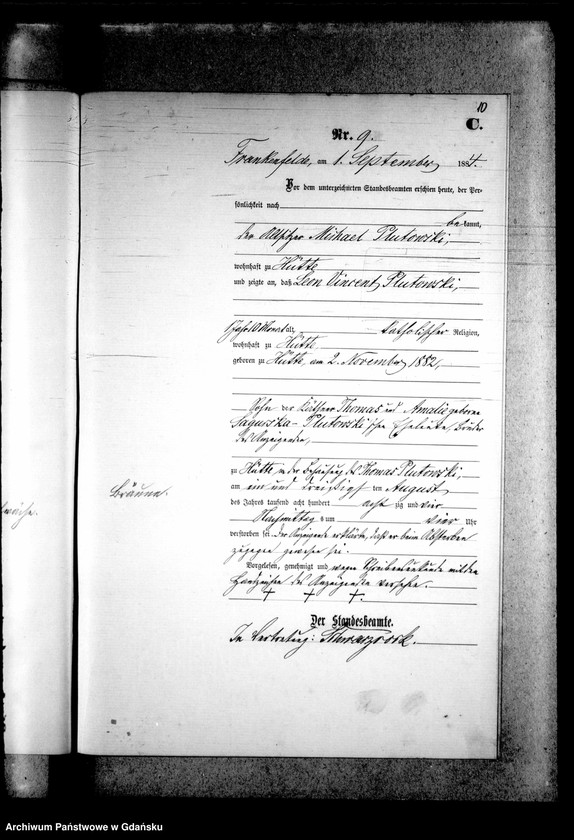 10
C.
Nr. 9.
Frankenfelde, am 1. September 1884.
Vor dem unterzeichneten Standesbeamten erschien heute, der Per-
sönlichkeit nach
be kannt,
der Altsitzer Michael Plutowski,
wohnhaft zu Hütte
und zeigte an, daß Leon Vincent Plutowski,
1 Jahr 10 Monat alt, katholischer Religion,
wohnhaft zu Hütte
geboren zu Hütte, am 2. November 1882,
Sohn der Käthner Thomas und Amalie geborne
Plutowski'schen Eheleute,
des Anzeigenden,
zu Hütte, in der Behausung des Thomas Plutowski,
am ein und dreißigsten August
des Jahres tausend acht hundert acht zig und vier
Nachmittags um vier Uhr
verstorben sei. Der Anzeigende erklärte, daß er beim Absterben
zugegen gewesen sei.
Vorgelesen, genehmigt und wegen Schreibensunkunde mit den
Handzeichen des Anzeigenden versehen.
+ + +.
Der Standesbeamte.
In Vertretung:
Bräune.
Archiwum Państwowe w Gdańsku